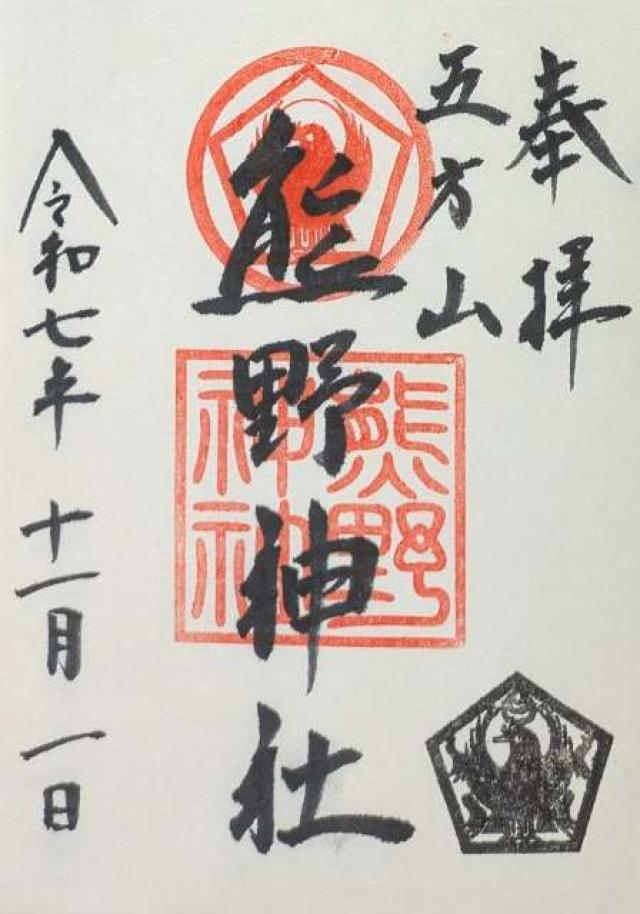 奉拝
五方山
熊野神社
熊野
神社
令和七年十一月一日